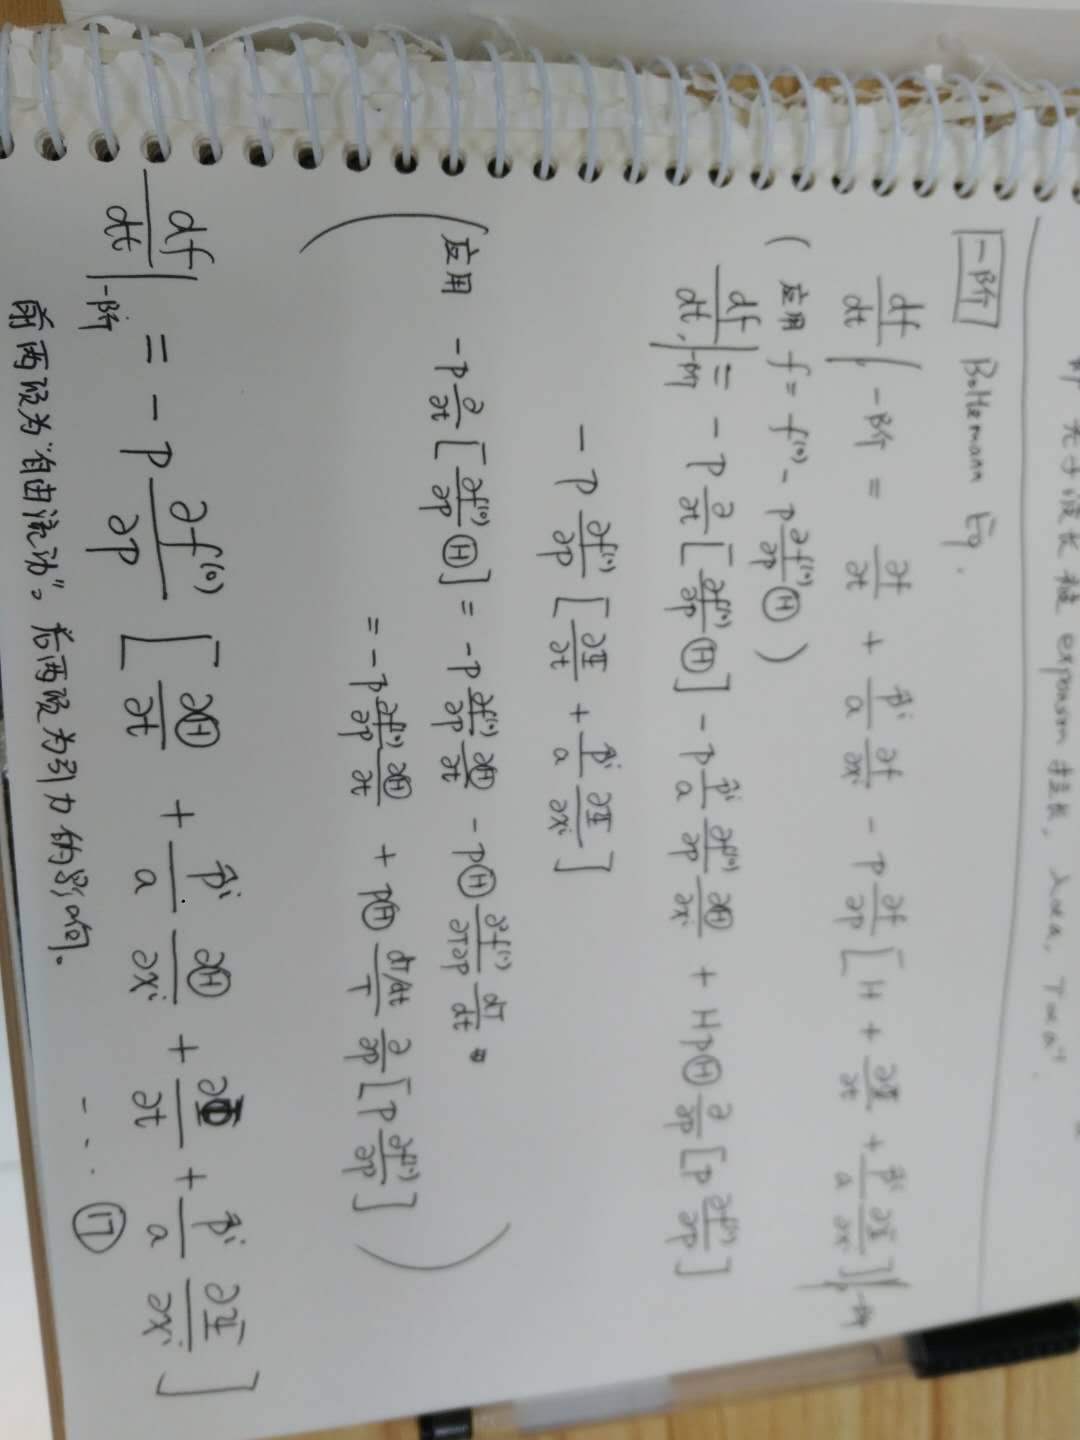 光子波长被 expansion 拉长, λ∝a, T∝a⁻¹.
一阶 Boltzmann Eq.
df/dt|一阶 = ∂f/∂t + p̂ⁱ/a ∂f/∂xⁱ - p ∂f/∂p [H + ∂Φ/∂t + p̂ⁱ/a ∂Ψ/∂xⁱ]|一阶
( 应用 f = f⁽⁰⁾ - p ∂f⁽⁰⁾/∂p Ⓗ )
df/dt|一阶 = - p ∂/∂t [∂f⁽⁰⁾/∂p Ⓗ] - p p̂ⁱ/a ∂f⁽⁰⁾/∂p ∂Ⓗ/∂xⁱ + HpⒽ ∂/∂p [p ∂f⁽⁰⁾/∂p]
- p ∂f⁽⁰⁾/∂p [∂Φ/∂t + p̂ⁱ/a ∂Ψ/∂xⁱ]
( 应用 -p ∂/∂t [∂f⁽⁰⁾/∂p Ⓗ] = -p ∂f⁽⁰⁾/∂p ∂Ⓗ/∂t - pⒽ ∂²f⁽⁰⁾/∂T∂p dT/dt
= -p ∂f⁽⁰⁾/∂p ∂Ⓗ/∂t + pⒽ dT/dt/T ∂/∂p [p ∂f⁽⁰⁾/∂p] )
df/dt|一阶 = - p ∂f⁽⁰⁾/∂p [∂Ⓗ/∂t + p̂ⁱ/a ∂Ⓗ/∂xⁱ + ∂Φ/∂t + p̂ⁱ/a ∂Ψ/∂xⁱ]
--·· ⑰
前两项为"自由流动"。后两项为引力的影响.